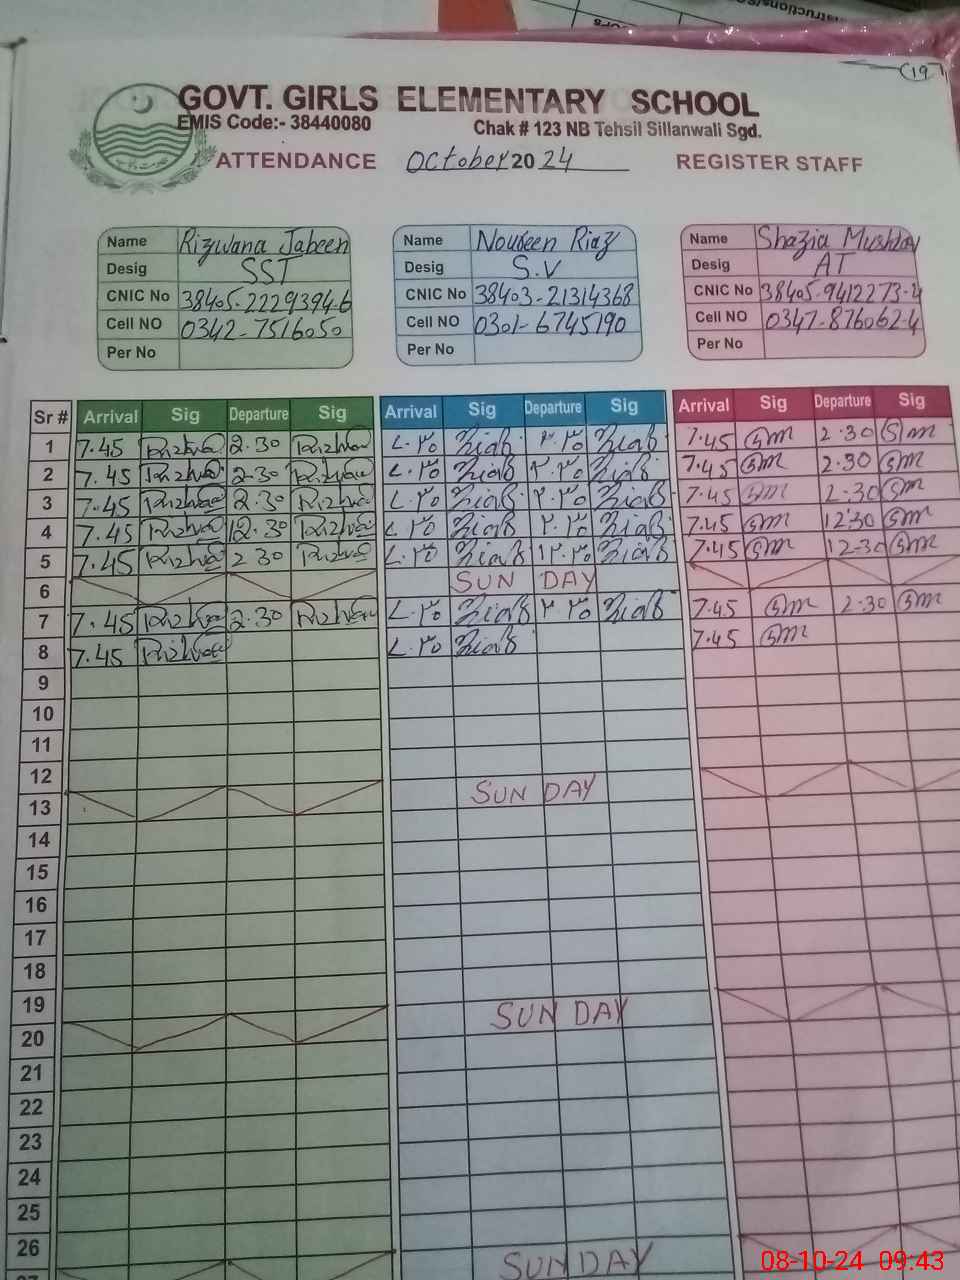 19
GOVT. GIRLS ELEMENTARY SCHOOL
EMIS Code:- 38440080 Chak # 123 NB Tehsil Sillanwali Sgd.
ATTENDANCE October 2024 REGISTER STAFF
Name Rizwana Jabeen Name Noureen Riaz Name Shazia Mushtaq
Desig SST Desig S.V Desig AT
CNIC No 38405-2229394-6 CNIC No 38403-21314368 CNIC No 38405-9412273-4
Cell NO 0342-7516050 Cell NO 0301-6745190 Cell NO 0347-876062-4
Per No Per No Per No
Sr # Arrival Sig Departure Sig Arrival Sig Departure Sig Arrival Sig Departure Sig
1 7.45 2.30 ۷.۳۰ ۲.۳۰ 7.45 Sm 2.30 Sm
2 7.45 2.30 ۷.۳۰ ۲.۳۰ 7.45 Sm 2.30 Sm
3 7.45 2.30 ۷.۳۰ ۲.۳۰ 7.45 Sm 2.30 Sm
4 7.45 12.30 ۷.۳۰ ۲.۳۰ 7.45 Sm 12.30 Sm
5 7.45 2.30 ۷.۳۰ ۱۲.۳۰ 7.45 Sm 12.30 Sm
6 SUN DAY
7 7.45 2.30 ۷.۳۰ ۲.۳۰ 7.45 Sm 2.30 Sm
8 7.45 ۷.۳۰ 7.45 Sm
9
10
11
12
13 SUN DAY
14
15
16
17
18
19
20 SUN DAY
21
22
23
24
25
26
SUN DAY
08-10-24 09:43